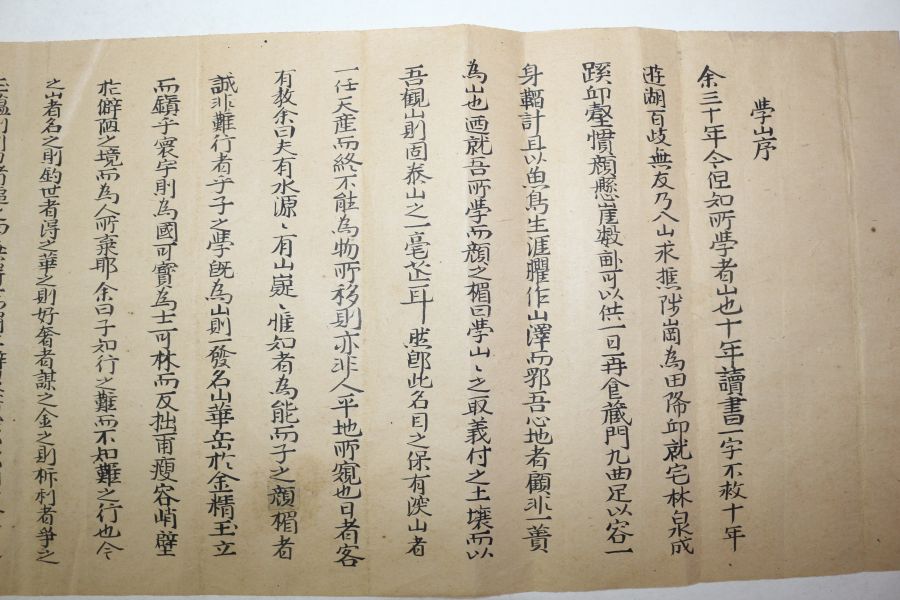 學山序
余三十年今但知所學者山也十年讀書一字不救十年
遊湖百歧無友乃入山求樵陟崗為田降卬就宅林泉成
蹊卬壑慣顔懸崖數畝可以供一日再食巖門九曲足以容一
身鞱計且以魚鳥生涯臞作山澤而郛吾心地者顧非一簣
為山也迺就吾所學而顔之楣曰學山〻之取義付之土壤而以
吾観山則固泰山之一毫芒耳然卽此名目之保有深山者
一任天産而終不能為物所移則亦非人平地所窺也日者客
有教余曰夫有水源〻有山嶷〻惟知者為能而子之顔楣者
誠非難行者乎子之學旣為山則一發名山華岳於金精玉立
而鎭乎寰宇則為國可寶為士可林而反拙甭瘦容峭壁
於僻陋之境而為人所棄耶余曰子知行之難而不知難之行也今
之山者名之則釣世者淂之華之則好奢者謀之金之則析利者爭之